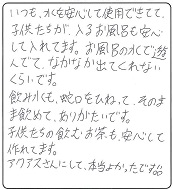 いつも、水を安心して使用できてて、
子供たちが、入るお風呂も安心
して入れてます。お風呂の水で遊
んでて、なかなか出てくれない
くらいです。
飲み水も、蛇口をひねって、そのま
ま飲めて、ありがたいです。
子供たちの飲むお茶も、安心して
作れてます。
アクアスさんにして、本当よかったです!!